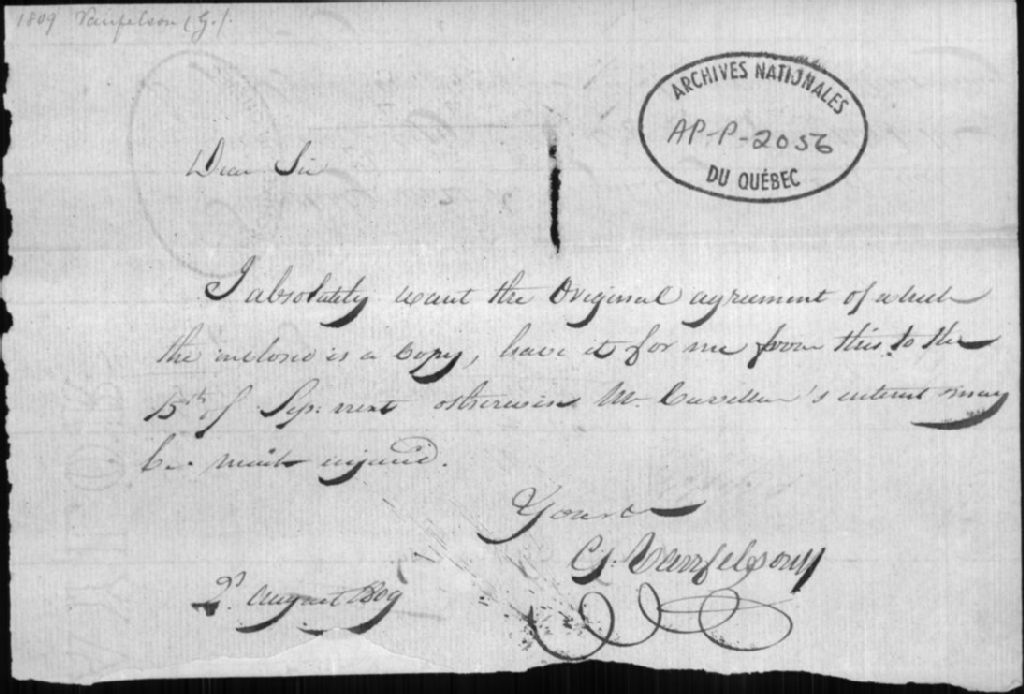 1809 Vanfelson (G.).
ARCHIVES NATIONALES
AP-P-2056
DU QUÉBEC
Dear Sir
I absolutely want the Original agreement of which
the inclose is a Copy, have it for me from this to the
15th of Sep: next otherwise Mr. Cuvillier's interest may
be much injured.
Yours
G. Vanfelson
2d. August 1809